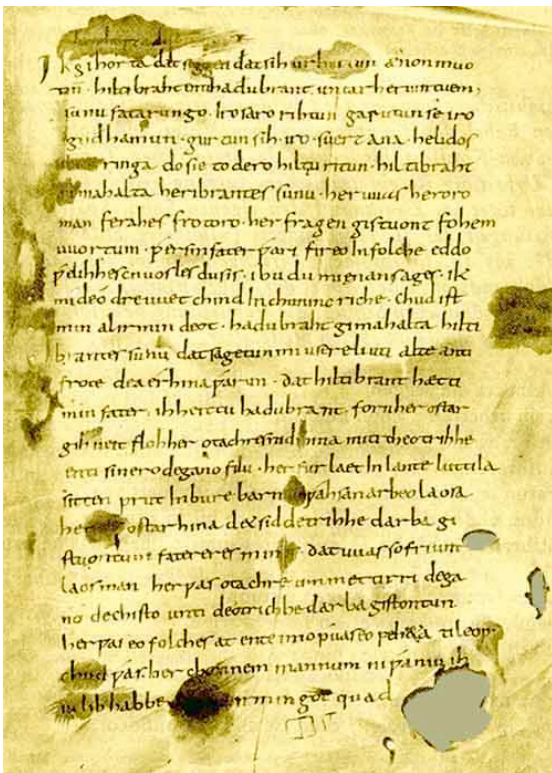 Ik gihorta dat seggen dat sih urhettun ænon muo
tin. hiltibraht enti hadubrant. untar heriun tuem,
sunu fatarungo. iro saro rihtun garutun se iro
gudhamun. gurtun sih. iro. suert ana. helidos
ubar ringa do sie to dero hiltu ritun. hiltibraht
gimahalta heribrantes sunu. her uuas heroro
man ferahes frotoro. her fragen gistuont fohem
uuortum. ƿer sin fater ƿari fireo In folche eddo
ƿelihhes cnuosles du sis. ibu du mi enan sages. ik
mi de odre uuet chind In chunincriche. chud ist
min al irmin deot. hadubraht gimahalta hilti
brantes sunu dat sagetun mi usere liuti alte anti
frote dea érhina ƿarun. dat hiltibrant hætti
min fater. ih heittu hadubrant. forn her ostar
gihueit floh her otachres nid hina miti theotrihhe
enti sinero degano filu. her furlaet In lante luttila
sitten prut In bure barn unƿahsan arbeo laosa
ostar hina d& sid detrihhe darba gi
stuontum fatereres mines. dat uuas so friunt
laos man her ƿas otachre ummet tirri dega
no dechisto unti deotrichhe darba gistontun
her ƿas eo folches at ente imo ƿuas eo feh&a ti leop
chud ƿas her chonnem mannum ni ƿaniu ih
iu lib habbe irmingot quad